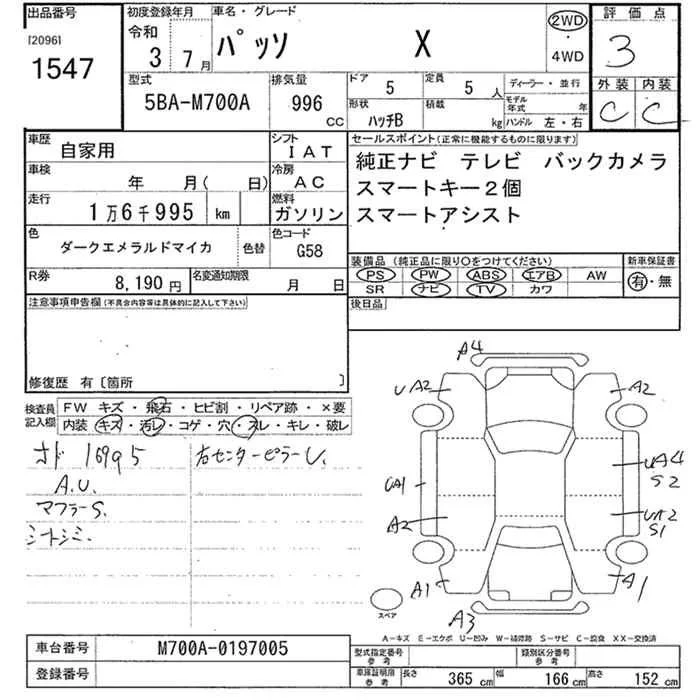 出品番号
[2096]
1547
初度登録年月
令和
3 7月
車名・グレード
パッソ X
2WD
・
4WD
評価点
3
外装 内装
C C
型式
5BA-M700A
排気量
996
CC
ドア
5
定員
5 人
形状
ハッチB
積載
kg
ディーラー・並行
モデル年式 年
ハンドル 左・右
車歴
自家用
シフト
IAT
車検
年 月( 日)
冷房
AC
走行
1万6千995 km
燃料
ガソリン
色
ダークエメラルドマイカ
色替
色コード
G58
R券
8,190円
名変通知期限
月 日
セールスポイント(正常に機能するものに限ります)
純正ナビ テレビ バックカメラ
スマートキー2個
スマートアシスト
装備品 (純正品に限り〇をつけてください)
PS PW ABS エアB AW
SR ナビ TV カワ
新車保証書
有・無
後日品
注意事項申告欄(不具合内容等は具体的に記入して下さい)
修復歴 有〔箇所 〕
検査員
記入欄
FW キズ・飛石・ヒビ割・リペア跡・×要
内装 キズ・汚レ・コゲ・穴・スレ・キレ・破レ
オド 16995
A.U.
マフラーS.
シートシミ.
右センターピラーU.
A4
UA2
A2
UA1
UA4
S2
A2
UA2
S1
A1
A1
A3
スペア
A-キズ E-エクボ U-凹ミ W-補修跡 S-サビ C-腐食 XX-交換済
車台番号
M700A-0197005
登録番号
型式指定番号
参考
類別区分番号
参考
車庫証明用
参考
長さ 365 cm
幅 166 cm
高さ 152 cm